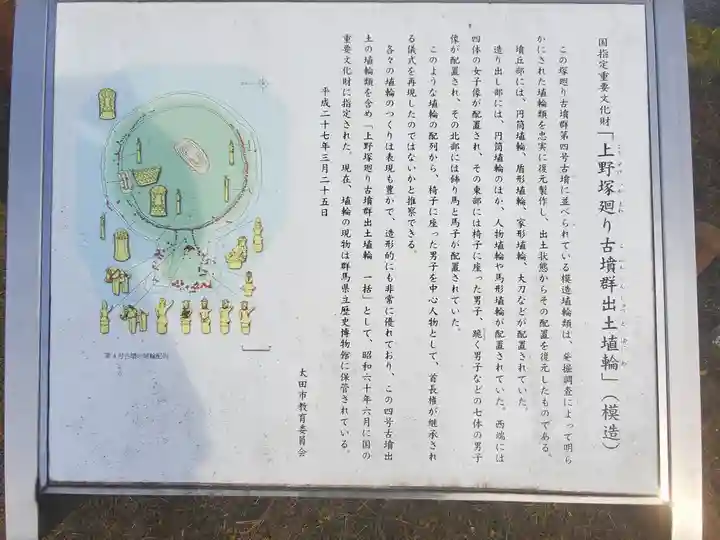 国指定重要文化財「上野塚廻り古墳群出土埴輪」（模造）
この塚廻り古墳群第四号古墳に並べられている模造埴輪類は、発掘調査によって明ら
かにされた埴輪類を忠実に復元製作し、出土状態からその配置を復元したものである。
墳丘部には、円筒埴輪、盾形埴輪、家形埴輪、大刀などが配置されていた。
造り出し部には、円筒埴輪のほか、人物埴輪や馬形埴輪が配置されていた。西端には
四体の女子像が配置され、その東部には椅子に座った男子、跪く男子などの七体の男子
像が配置され、その北部には飾り馬と馬子が配置されていた。
このような埴輪の配列から、椅子に座った男子を中心人物として、首長権が継承され
る儀式を再現したのではないかと推察できる。
各々の埴輪のつくりは表現も豊かで、造形的にも非常に優れており、この四号古墳出
土の埴輪類を含め「上野塚廻り古墳群出土埴輪　一括」として、昭和六十年六月に国の
重要文化財に指定された。現在、埴輪の現物は群馬県立歴史博物館に保管されている。
平成二十七年三月二十五日
太田市教育委員会
第4号古墳の埴輪配列